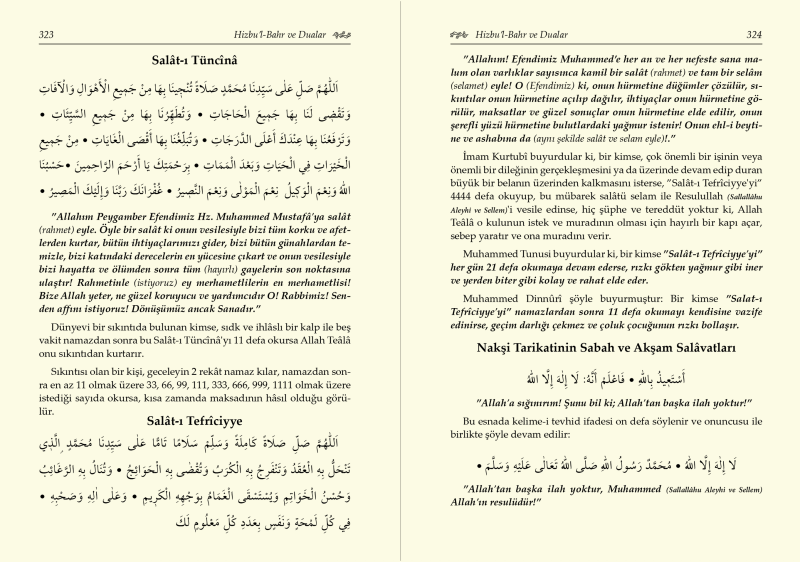 323
Hizbu'l-Bahr ve Dualar
Salât-ı Tüncînâ
اَللّٰهُمَّ صَلِّ عَلٰى سَيِّدِنَا مُحَمَّدٍ صَلَاةً تُنْجِينَا بِهَا مِنْ جَمِيعِ الْاَهْوَالِ وَالْاٰفَاتِ
وَتَقْضِى لَنَا بِهَا جَمِيعَ الْحَاجَاتِ • وَتُطَهِّرُنَا بِهَا مِنْ جَمِيعِ السَّيِّئَاتِ •
وَتَرْفَعُنَا بِهَا عِنْدَكَ أَعْلَى الدَّرَجَاتِ • وَتُبَلِّغُنَا بِهَا أَقْصَى الْغَايَاتِ • مِنْ جَمِيعِ
الْخَيْرَاتِ فِي الْحَيَاتِ وَبَعْدَ الْمَمَاتِ • بِرَحْمَتِكَ يَا أَرْحَمَ الرَّاحِمِينَ •حَسْبُنَا
اللهُ وَنِعْمَ الْوَكِيلُ نِعْمَ الْمَوْلٰى وَنِعْمَ النَّصِيرُ • غُفْرَانَكَ رَبَّنَا وَإِلَيْكَ الْمَصِيرُ •
"Allahım Peygamber Efendimiz Hz. Muhammed Mustafâ'ya salât
(rahmet) eyle. Öyle bir salât ki onun vesilesiyle bizi tüm korku ve afet-
lerden kurtar, bütün ihtiyaçlarımızı gider, bizi bütün günahlardan te-
mizle, bizi katındaki derecelerin en yücesine çıkart ve onun vesilesiyle
bizi hayatta ve ölümden sonra tüm (hayırlı) gayelerin son noktasına
ulaştır! Rahmetinle (istiyoruz) ey merhametlilerin en merhametlisi!
Bize Allah yeter, ne güzel koruyucu ve yardımcıdır O! Rabbimiz! Sen-
den affını istiyoruz! Dönüşümüz ancak Sanadır."
Dünyevi bir sıkıntıda bulunan kimse, sıdk ve ihlâslı bir kalp ile beş
vakit namazdan sonra bu Salât-ı Tüncînâ'yı 11 defa okursa Allah Teâlâ
onu sıkıntıdan kurtarır.
Sıkıntısı olan bir kişi, geceleyin 2 rekât namaz kılar, namazdan son-
ra en az 11 olmak üzere 33, 66, 99, 111, 333, 666, 999, 1111 olmak üzere
istediği sayıda okursa, kısa zamanda maksadının hâsıl olduğu görü-
lür.
Salât-ı Tefrîciyye
اَللّٰهُمَّ صَلِّ صَلَاةً كَامِلَةً وَسَلِّمْ سَلَامًا تَامًّا عَلٰى سَيِّدِنَا مُحَمَّدٍ ࣙالَّذِي
تَنْحَلُّ بِهِ الْعُقَدُ وَتَنْفَرِجُ بِهِ الْكُرَبُ وَتُقْضٰى بِهِ الْحَوَائِجُ • وَتُنَالُ بِهِ الرَّغَائِبُ
وَحُسْنُ الْخَوَاتِمِ وَيُسْتَسْقَى الْغَمَامُ بِوَجْهِهِ الْكَرِيمِ • وَعَلٰى اٰلِهِ وَصَحْبِهِ •
فِي كُلِّ لَمْحَةٍ وَنَفَسٍ بِعَدَدِ كُلِّ مَعْلُومٍ لَكَ
Hizbu'l-Bahr ve Dualar
324
"Allahım! Efendimiz Muhammed'e her an ve her nefeste sana ma-
lum olan varlıklar sayısınca kamil bir salât (rahmet) ve tam bir selâm
(selamet) eyle! O (Efendimiz) ki, onun hürmetine düğümler çözülür, sı-
kıntılar onun hürmetine açılıp dağılır, ihtiyaçlar onun hürmetine gö-
rülür, maksatlar ve güzel sonuçlar onun hürmetine elde edilir, onun
şerefli yüzü hürmetine bulutlardaki yağmur istenir! Onun ehl-i beyti-
ne ve ashabına da (aynı şekilde salât ve selam eyle)!."
İmam Kurtubî buyurdular ki, bir kimse, çok önemli bir işinin veya
önemli bir dileğinin gerçekleşmesini ya da üzerinde devam edip duran
büyük bir belanın üzerinden kalkmasını isterse, "Salât-ı Tefrîciyye'yi"
4444 defa okuyup, bu mübarek salâtü selam ile Resulullah (Sallallâhu
Aleyhi ve Sellem)'i vesile edinse, hiç şüphe ve tereddüt yoktur ki, Allah
Teâlâ o kulunun istek ve muradının olması için hayırlı bir kapı açar,
sebep yaratır ve ona muradını verir.
Muhammed Tunusi buyurdular ki, bir kimse "Salât-ı Tefrîciyye'yi"
her gün 21 defa okumaya devam ederse, rızkı gökten yağmur gibi iner
ve yerden biter gibi kolay ve rahat elde eder.
Muhammed Dinnûrî şöyle buyurmuştur: Bir kimse "Salat-ı
Tefrîciyye'yi" namazlardan sonra 11 defa okumayı kendisine vazife
edinirse, geçim darlığı çekmez ve çoluk çocuğunun rızkı bollaşır.
Nakşi Tarikatinin Sabah ve Akşam Salâvatları
أَسْتَعِيذُ بِاللهِ • فَاعْلَمْ أَنَّهُ: لَا إِلٰهَ إِلَّا اللهُ
"Allah'a sığınırım! Şunu bil ki; Allah'tan başka ilah yoktur!"
Bu esnada kelime-i tevhid ifadesi on defa söylenir ve onuncusu ile
birlikte şöyle devam edilir:
لَا إِلٰهَ إِلَّا اللهُ • مُحَمَّدٌ رَسُولُ اللهِ صَلَّى اللهُ تَعَالٰى عَلَيْهِ وَسَلَّمَ •
"Allah'tan başka ilah yoktur, Muhammed (Sallallâhu Aleyhi ve Sellem)
Allah'ın resulüdür!"